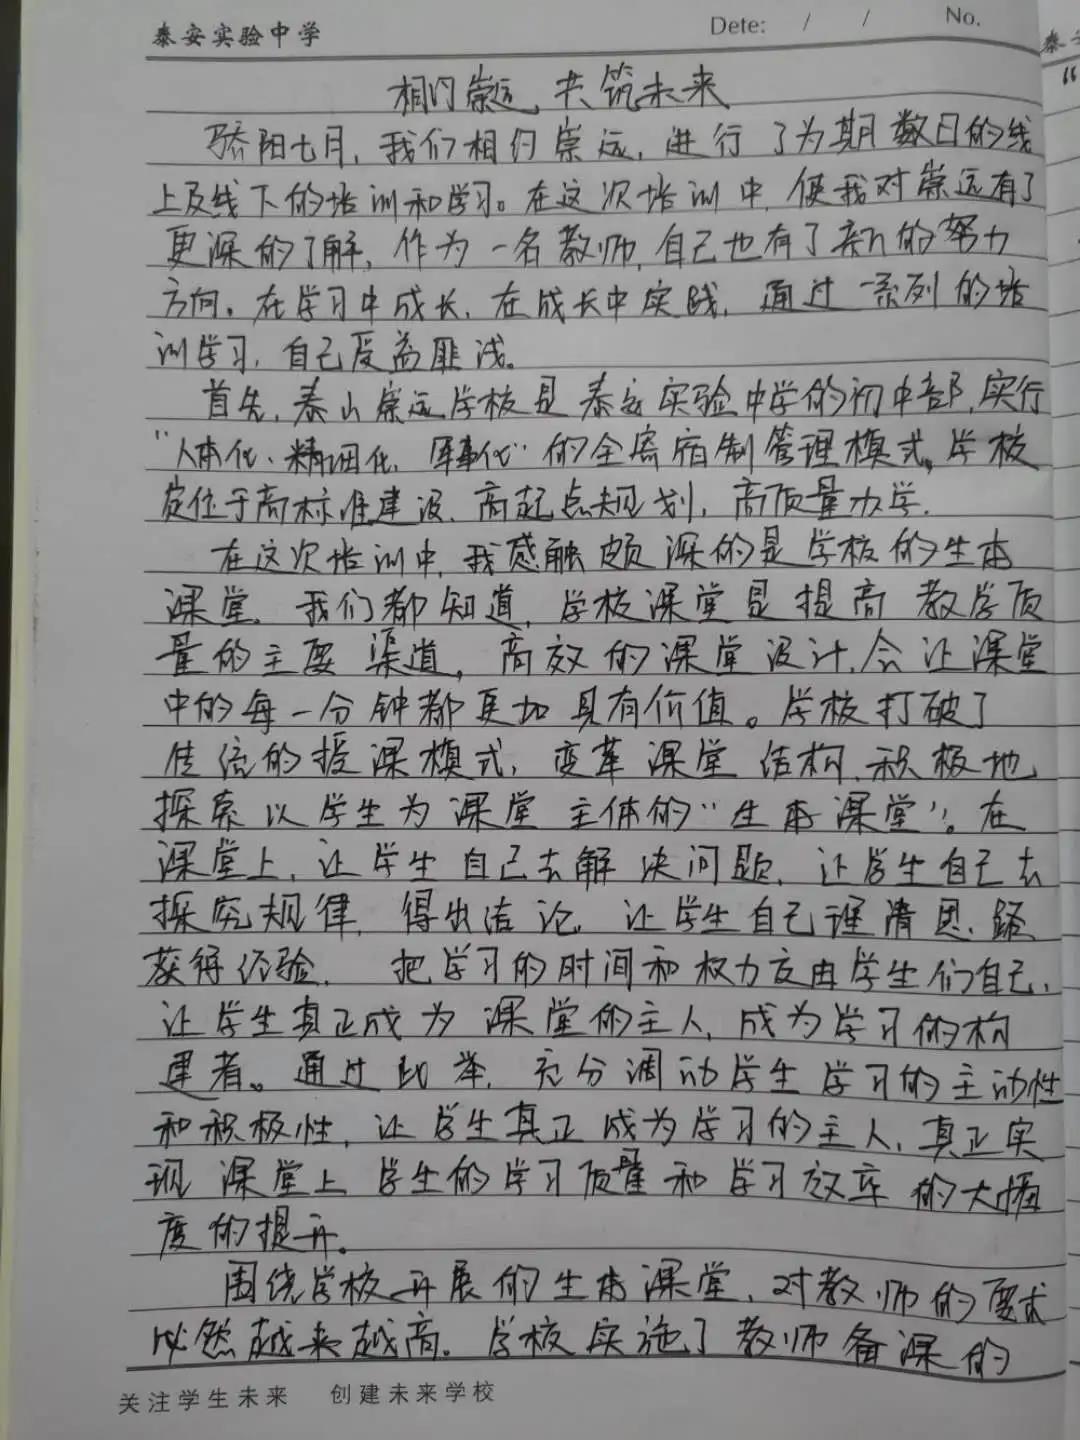 泰安实验中学
Dete: / / No.
相约崇远,共筑未来
骄阳七月,我们相约崇远,进行了为期数日的线
上及线下的培训和学习。在这次培训中,使我对崇远有了
更深的了解,作为一名教师,自己也有了新的努力
方向。在学习中成长,在成长中实践,通过一系列的培
训学习,自己受益匪浅。
首先,泰山崇远学校是泰安实验中学的初中部,实行
“人本化、精细化、军事化”的全寄宿制管理模式。学校
定位于高标准建设、高起点规划,高质量办学.
在这次培训中,我感触颇深的是学校的生本
课堂.我们都知道,学校课堂是提高教学质
量的主要渠道,高效的课堂设计,会让课堂
中的每一分钟都更加具有价值。学校打破了
传统的授课模式,变革课堂结构,积极地
探索以学生为课堂主体的“生本课堂”。在
课堂上,让学生自己去解决问题,让学生自己去
探究规律,得出结论,让学生自己理清思路
获得经验.把学习的时间和权力交由学生们自己,
让学生真正成为课堂的主人,成为学习的构
建者。通过此举,充分调动学生学习的主动性
和积极性,让学生真正成为学习的主人,真正实
现课堂上学生的学习质量和学习效率的大幅
度的提升。
围绕学校开展的生本课堂,对教师的要求
必然越来越高。学校实施了教师备课的
关注学生未来 创建未来学校
泰
“